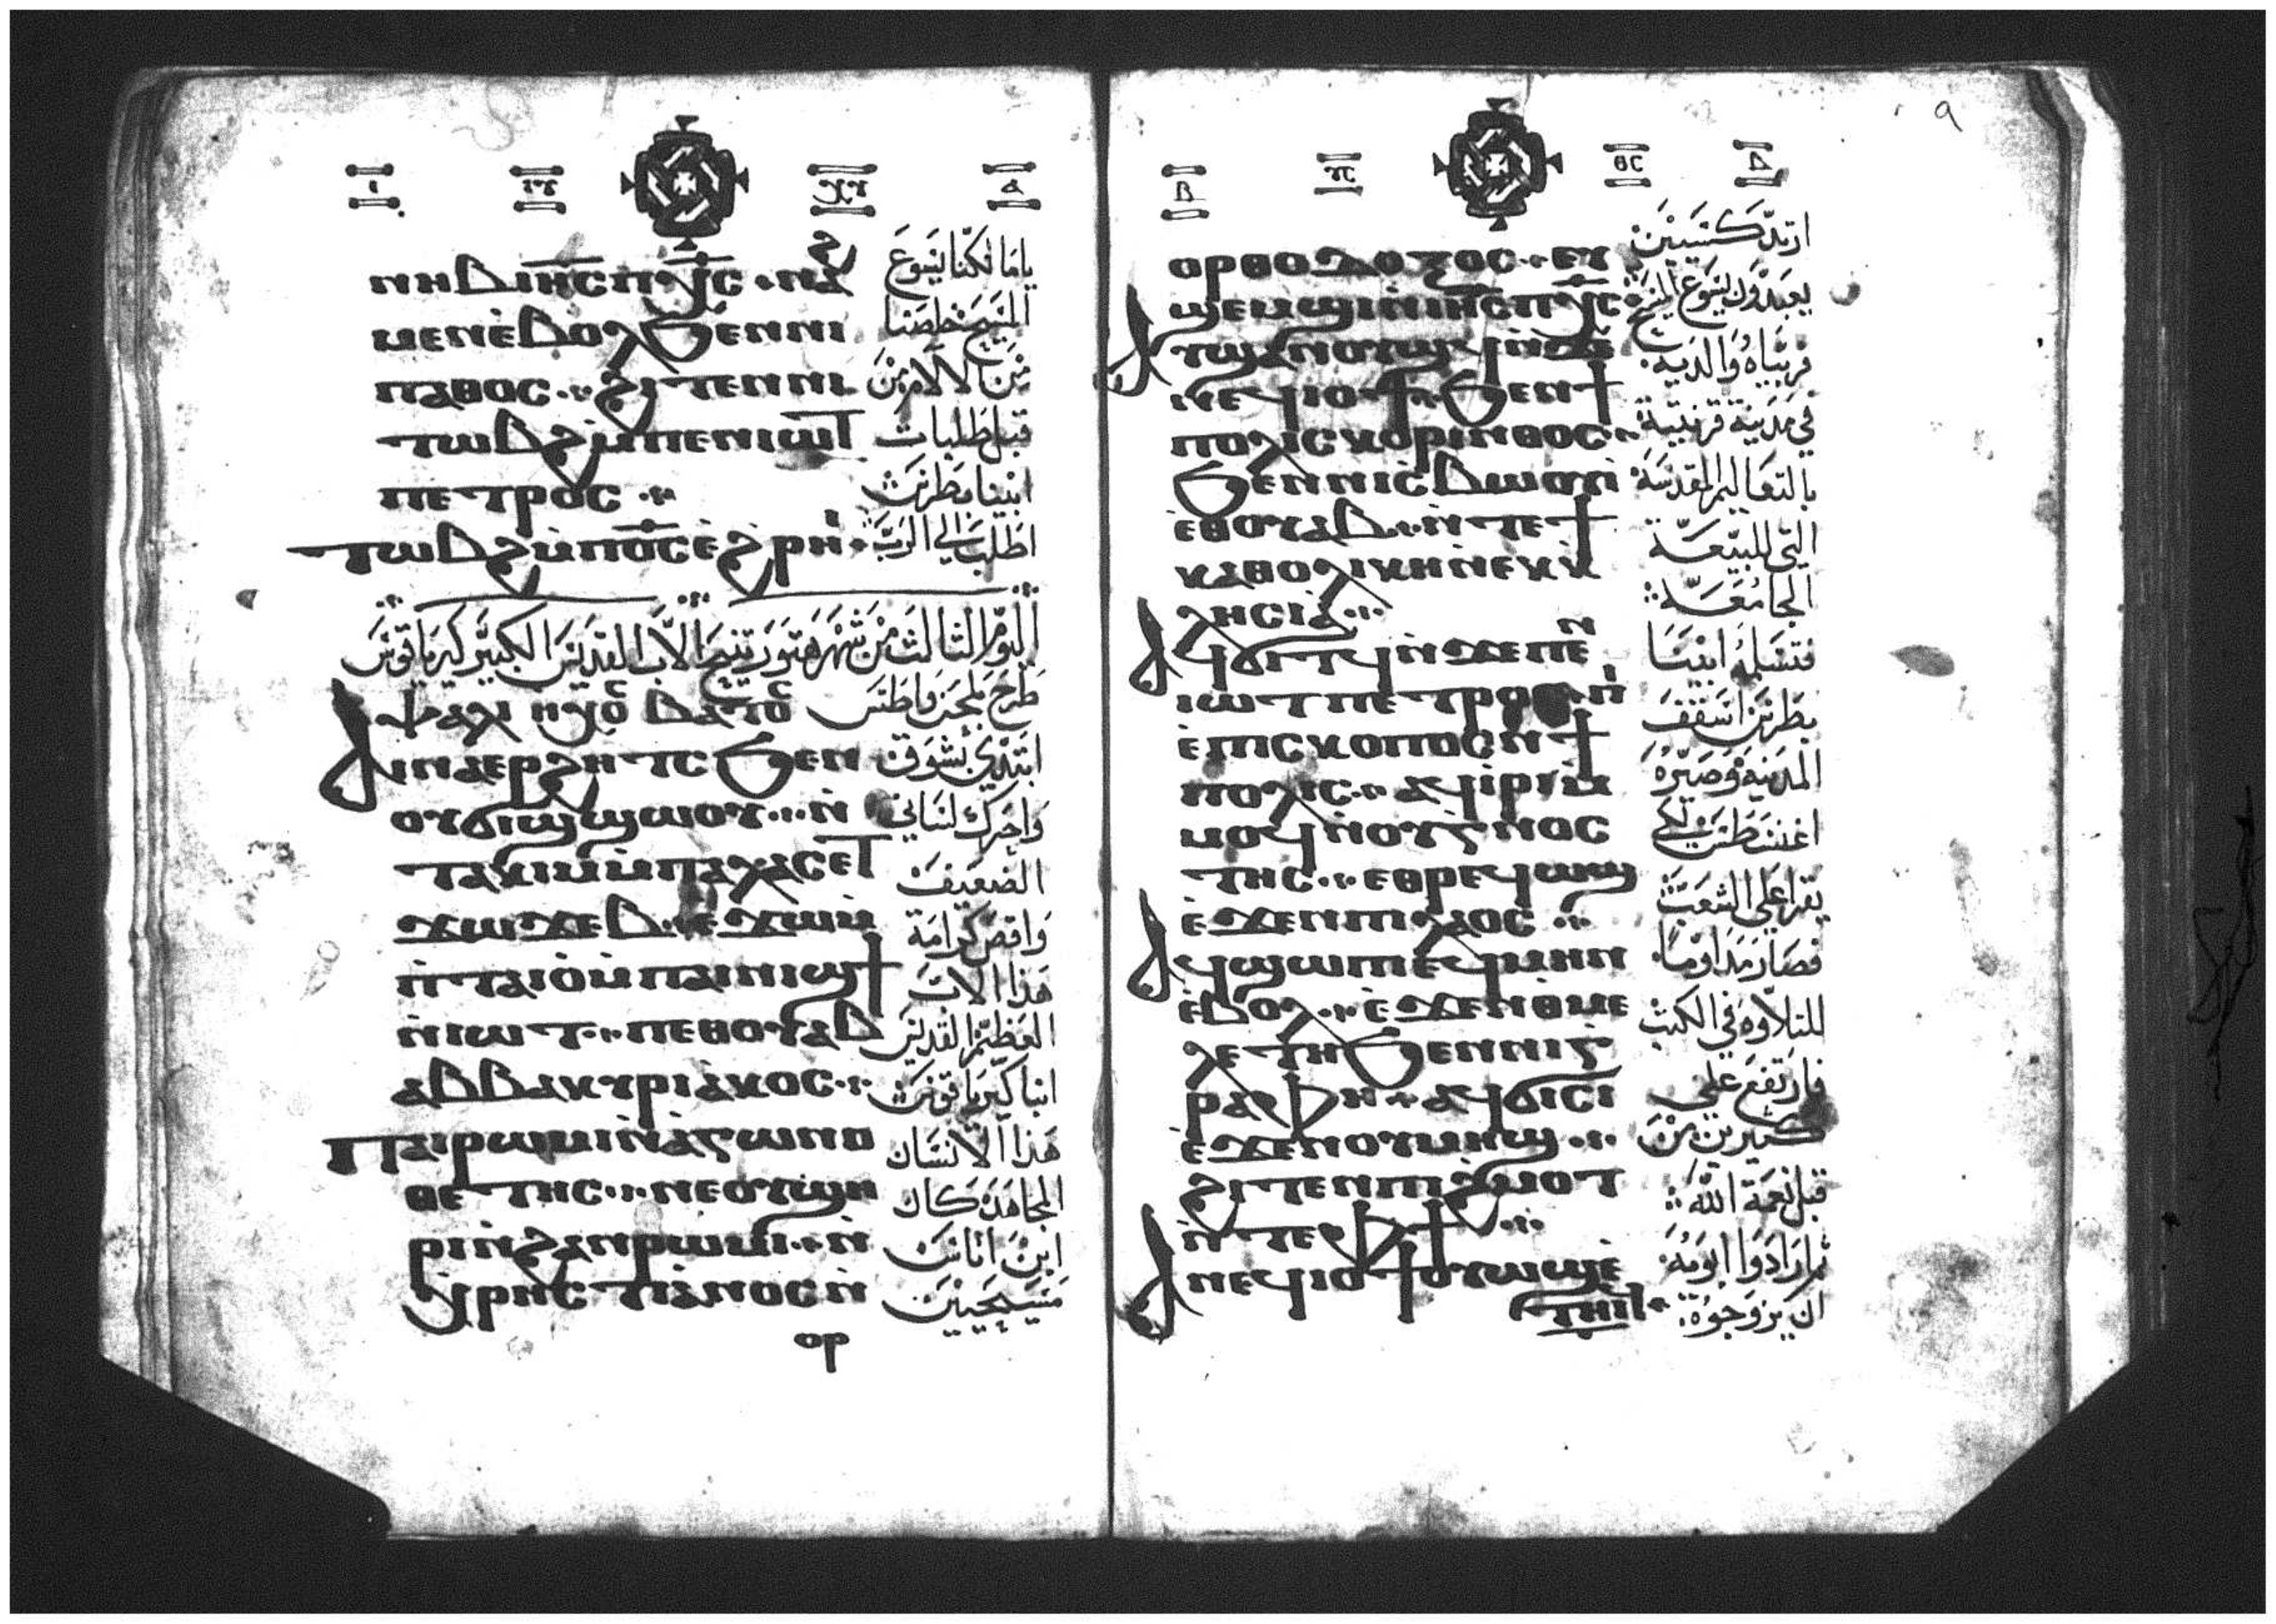 ⲛⲏⲃ ⲓⲏⲥ ⲡⲭⲥ · ⲛⲁϩ
ⲙⲉⲛ ⲉⲃⲟⲗ ϧⲉⲛ ⲛⲓ
ⲡⲁⲑⲟⲥ ·· ϩⲓⲧⲉⲛ ⲛⲓ
ⲧⲱⲃϩ ⲙⲡⲉⲛⲓⲱⲧ
ⲡⲉⲧⲣⲟⲥ ··
ⲧⲱⲃϩ ⲙⲡⲟⲥ ⲉϩⲣⲏⲓ ·
يامالكنا يسوع
المسيح خلصنا
من الالام من
قبل طلبات
ابينا بطرس
اطلب الي الرب
اليوم الثالث من شهر هتور تنيح الاب القديس الكبير كيرياقوس
ⲯⲁⲗⲓ ⲏⲭⲟⲥ ⲃⲁⲧⲟⲥ طرح بلحن واطس
ⲁⲓⲛⲁⲉⲣϩⲏⲧⲥ ϧⲉⲛ
ⲟⲩϭⲓϣϣⲱⲟⲩ ··· ⲛ
ⲧⲁⲕⲓⲙ ⲙⲡⲁⲗⲁⲥ ⲉⲧ
ϫⲱϫⲉⲃ · ⲉϫⲱ ⲙ
ⲡⲧⲁⲓⲟ ⲙⲡⲁⲓⲛⲓϣϯ
ⲛⲓⲱⲧ ·· ⲡⲉⲑⲟⲩⲁⲃ
ⲁⲃⲃⲁ ⲕⲩⲣⲓⲁⲕⲟⲥ ··
ⲡⲁⲓⲣⲱⲙⲓ ⲛⲁⲅⲱⲛⲟ
ⲑⲉⲧⲏⲥ ··· ⲛⲉ ⲟⲩϣⲏ
ⲣⲓ ⲛϩⲁⲛⲣⲱⲙⲓ ·· ⲛ
ⲭⲣⲏⲥⲧⲓⲁⲛⲟⲥ ⲛ
ⲟⲣ
ابتدي بشوق
واحرك لساني
الضعيف
واقص كرامة
هذا الاب
العظيم القديس
انبا كيرياقوس
هذا الانسان
المجاهد كان
ابن اناس
مسيحيين
ⲟⲣⲑⲟⲇⲟⲝⲟⲥ ·· ⲉⲩ
ϣⲉⲙϣⲓ ⲛⲓⲏⲥ ⲡⲭⲥ ·
ⲁⲩϣⲁⲛⲟⲩϣϥ ⲛϫⲉ
ⲛⲉϥⲓⲟϯ ·· ϧⲉⲛ ϯ
ⲡⲟⲗⲓⲥ ⲕⲟⲣⲓⲛⲑⲟⲥ ··
ϧⲉⲛ ⲛⲓⲥⲃⲱⲟⲩⲓ
ⲉⲑⲟⲩⲁⲃ ·· ⲛⲧⲉ ϯ
ⲕⲁⲑⲟⲗⲓⲕⲏ ⲛⲉⲕⲕ
ⲗⲏⲥⲓⲁ ···
ⲁϥϭⲓⲧϥ ⲛϫⲉ ⲡⲉⲛ
ⲓⲱⲧ ⲡⲉⲧⲣⲟⲥ · ⲡⲓ
ⲉⲡⲓⲥⲕⲟⲡⲟⲥ ⲛϯ
ⲡⲟⲗⲓⲥ ·· ⲁϥⲓⲣⲓ ⲙ
ⲙⲟϥ ⲛⲟⲩⲅⲛⲟⲥ
ⲧⲏⲥ ·· ⲉⲑⲣⲉϥⲱϣ
ⲉϫⲉⲛ ⲡⲓⲗⲁⲟⲥ ··
ⲁϥϣⲱⲡⲓ ⲉϥⲙⲏⲛ
ⲉⲃⲟⲗ ·· ⲉϫⲉⲛ ⲑⲙⲉ
ⲗⲉⲧⲏ ϧⲉⲛ ⲛⲓⲅ
ⲣⲁⲫⲏ · ⲁϥϭⲓⲥⲓ
ⲉϫⲉⲛ ⲟⲩⲙⲏϣ ··
ϩⲓⲧⲉⲛ ⲡⲓϩⲙⲟⲧ
ⲛⲧⲉ ⲫϯ ···
ⲁⲛⲉϥⲓⲟϯ ⲟⲩⲱϣ ⲉ
ⲧⲏⲓϥ ·
ارتدكسيين
يعبدون يسوع المسيح
فربياه والديه
في مدينة قرنتية
بالتعاليم المقدسة
التي للبيعة
الجامعة
فتسلمه ابينا
بطرس اسقف
المدينة وصيره
اغنسطس لكي
يقرا علي الشعب
فصار مداوما
للتلاوة في الكتب
فارتفع علي
كثيرين من
قبل نعمة الله
ثم ارادوا ابويه
ان يزوجوه